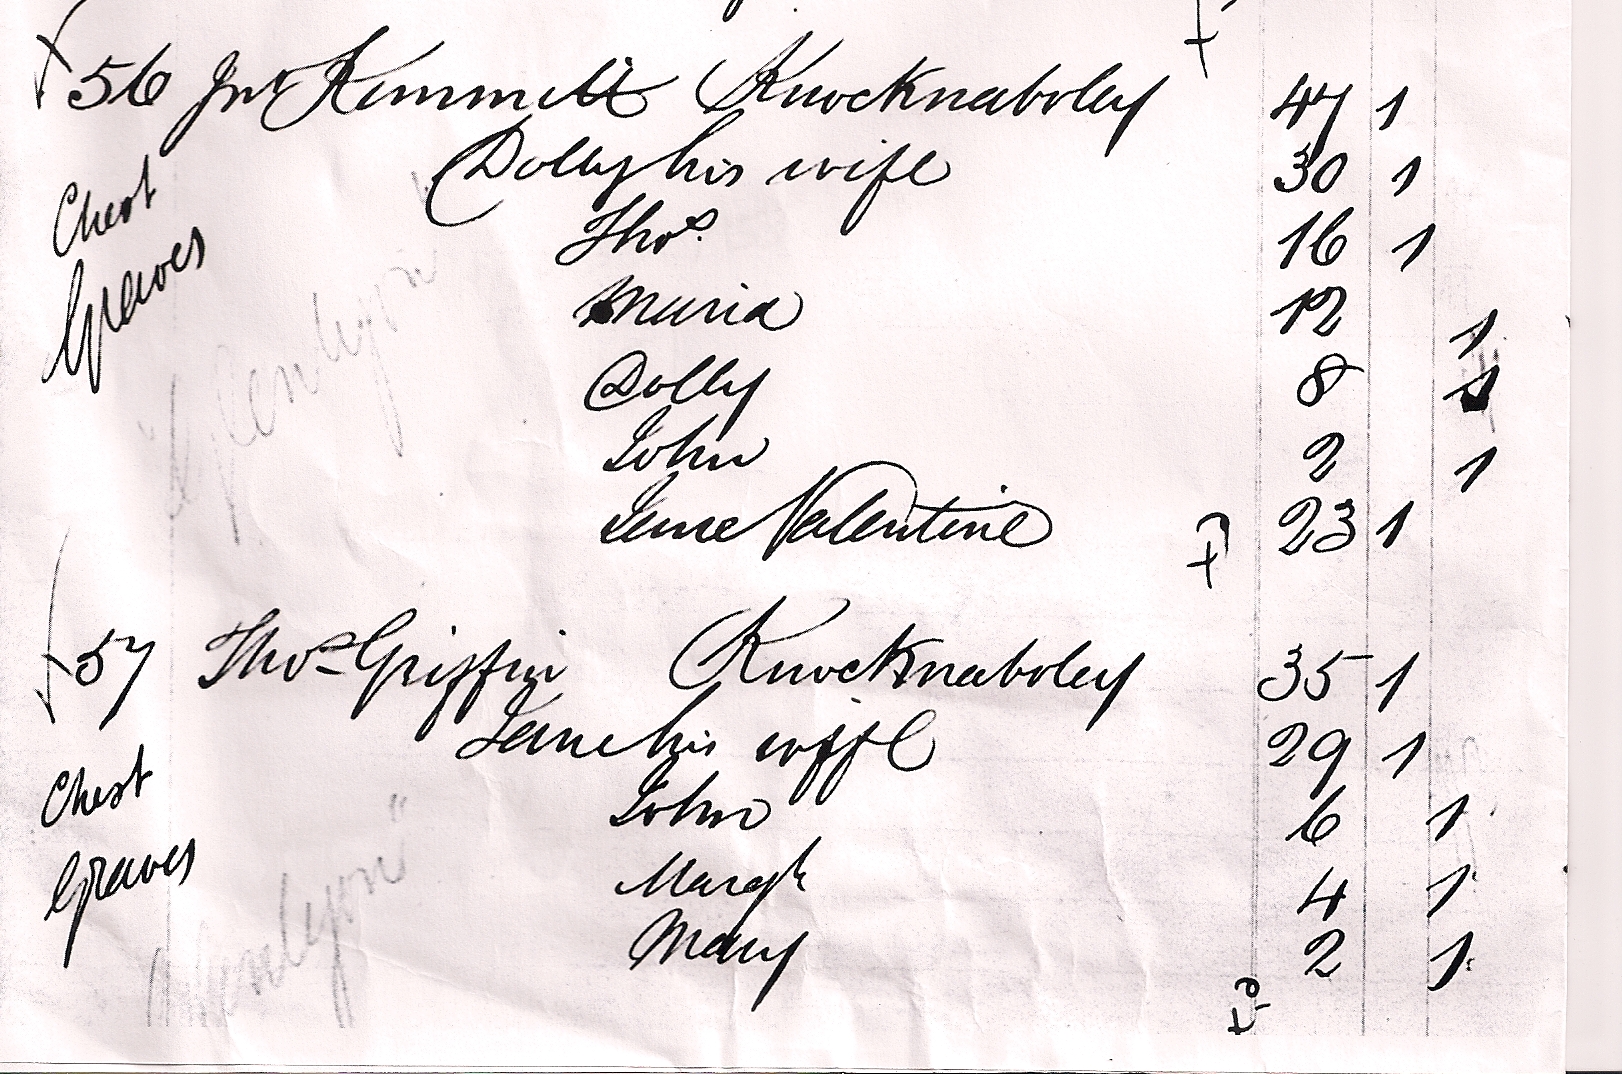 56 Jno Kemmett Knocknaboley 47 1
Dolly his wife 30 1
Chest Thos. 16 1
Graves Maria 12 1
Dolly 8 1
John 2 1
Jane Valentine 23 1
57 Thos Griffin Knocknaboley 35 1
Jane his wife 29 1
Chest John 6 1
Graves Margt 4 1
Mary 2 1
"Glenlyon"
Glenlyon"